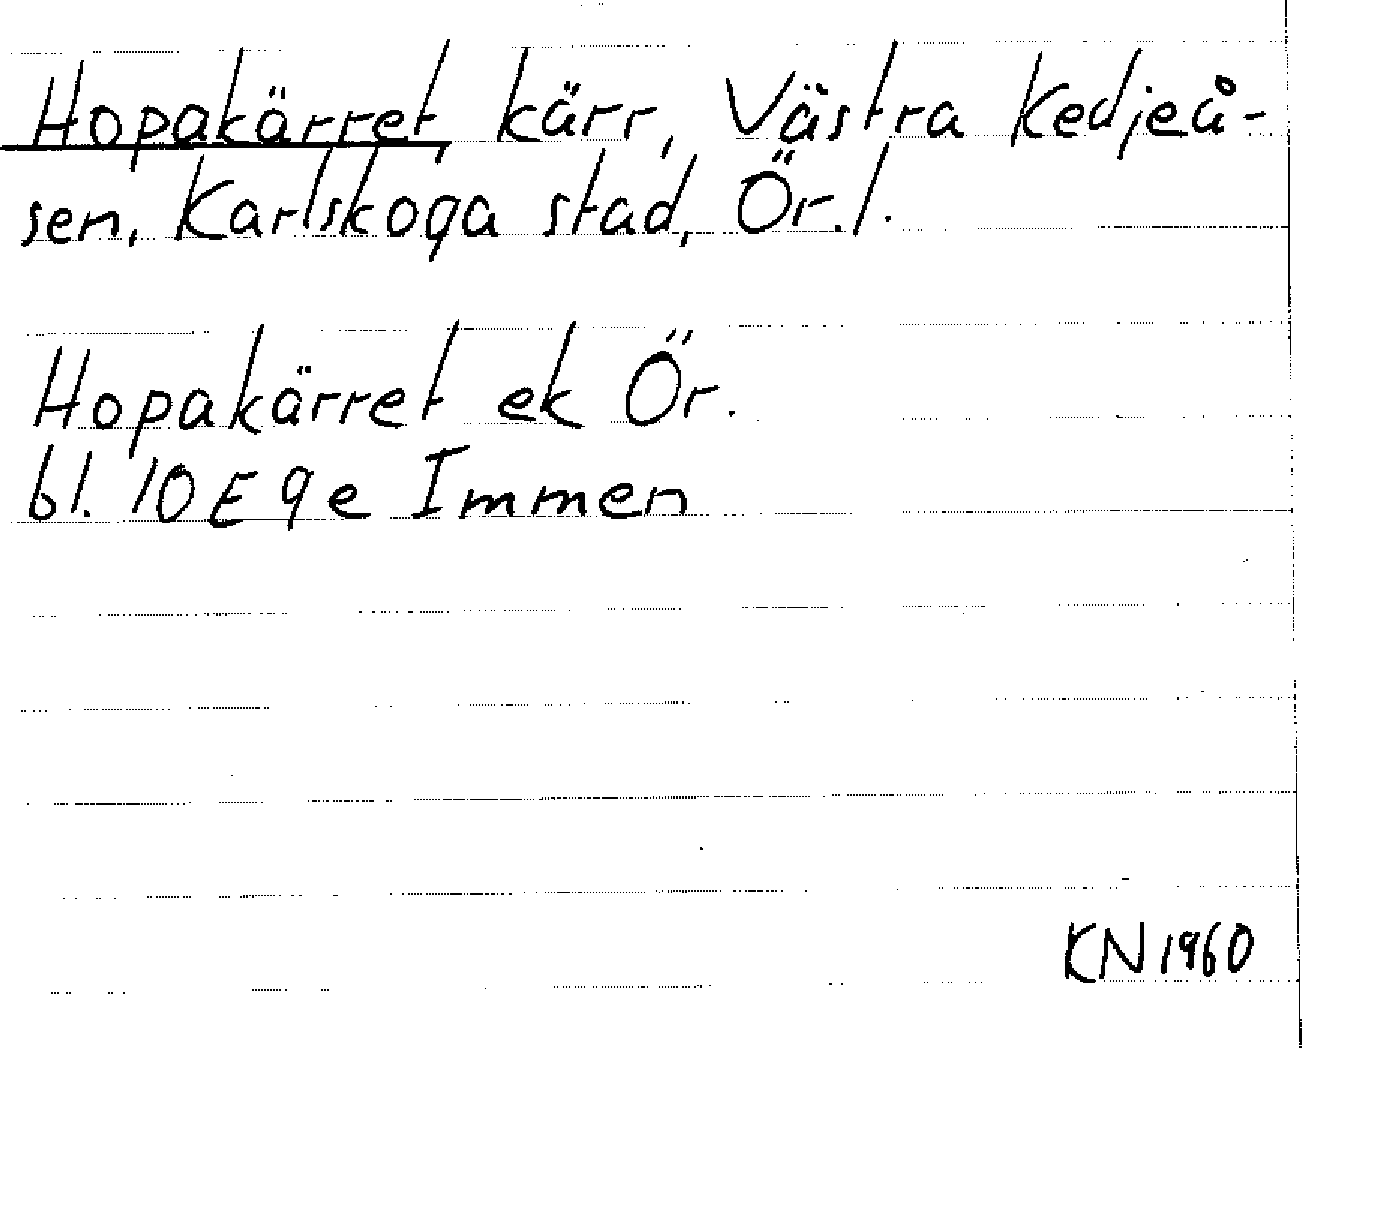 Hopakärret, kärr, Västra Kedjeå-
sen, Karlskoga stad, Ör.l.
Hopakärret ek Ör.
bl. 10E 9e Immen
KN 1960